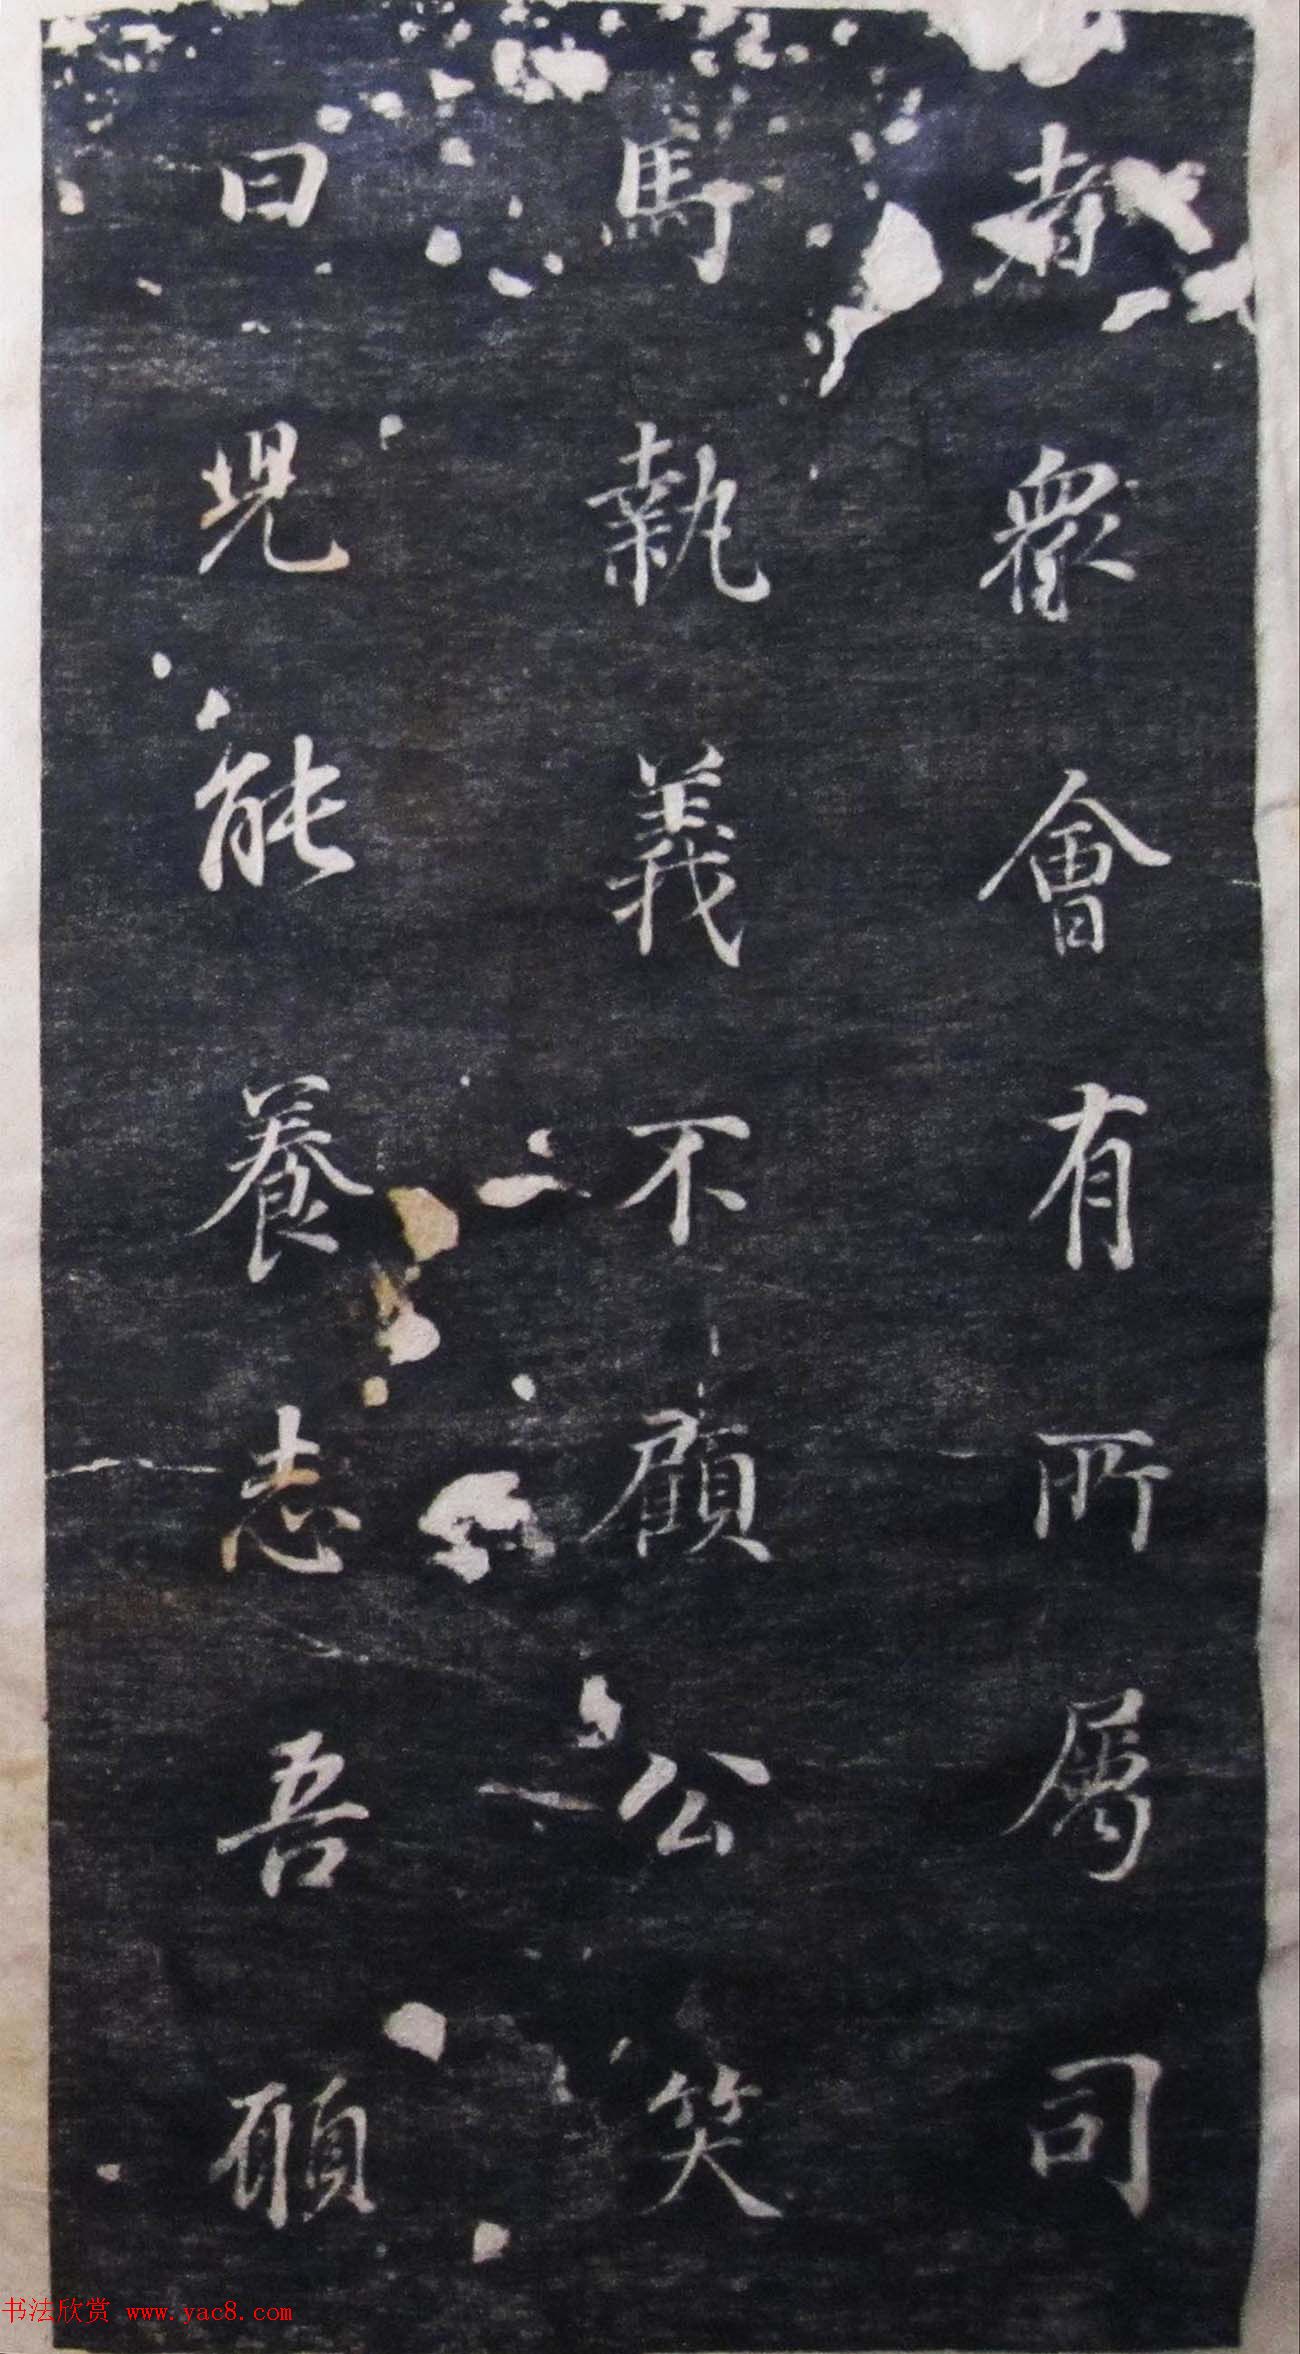 者眾會有所屬司
馬執義不顧公笑
曰児能養志吾願
书法欣赏 www.yac8.com